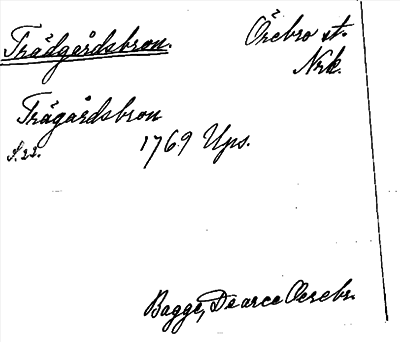 Trädgårdsbron. Örebro st.
Nrk.
Trägårdsbron
S. 22. 1769 Ups.
Bagge, De arce Oerebr.